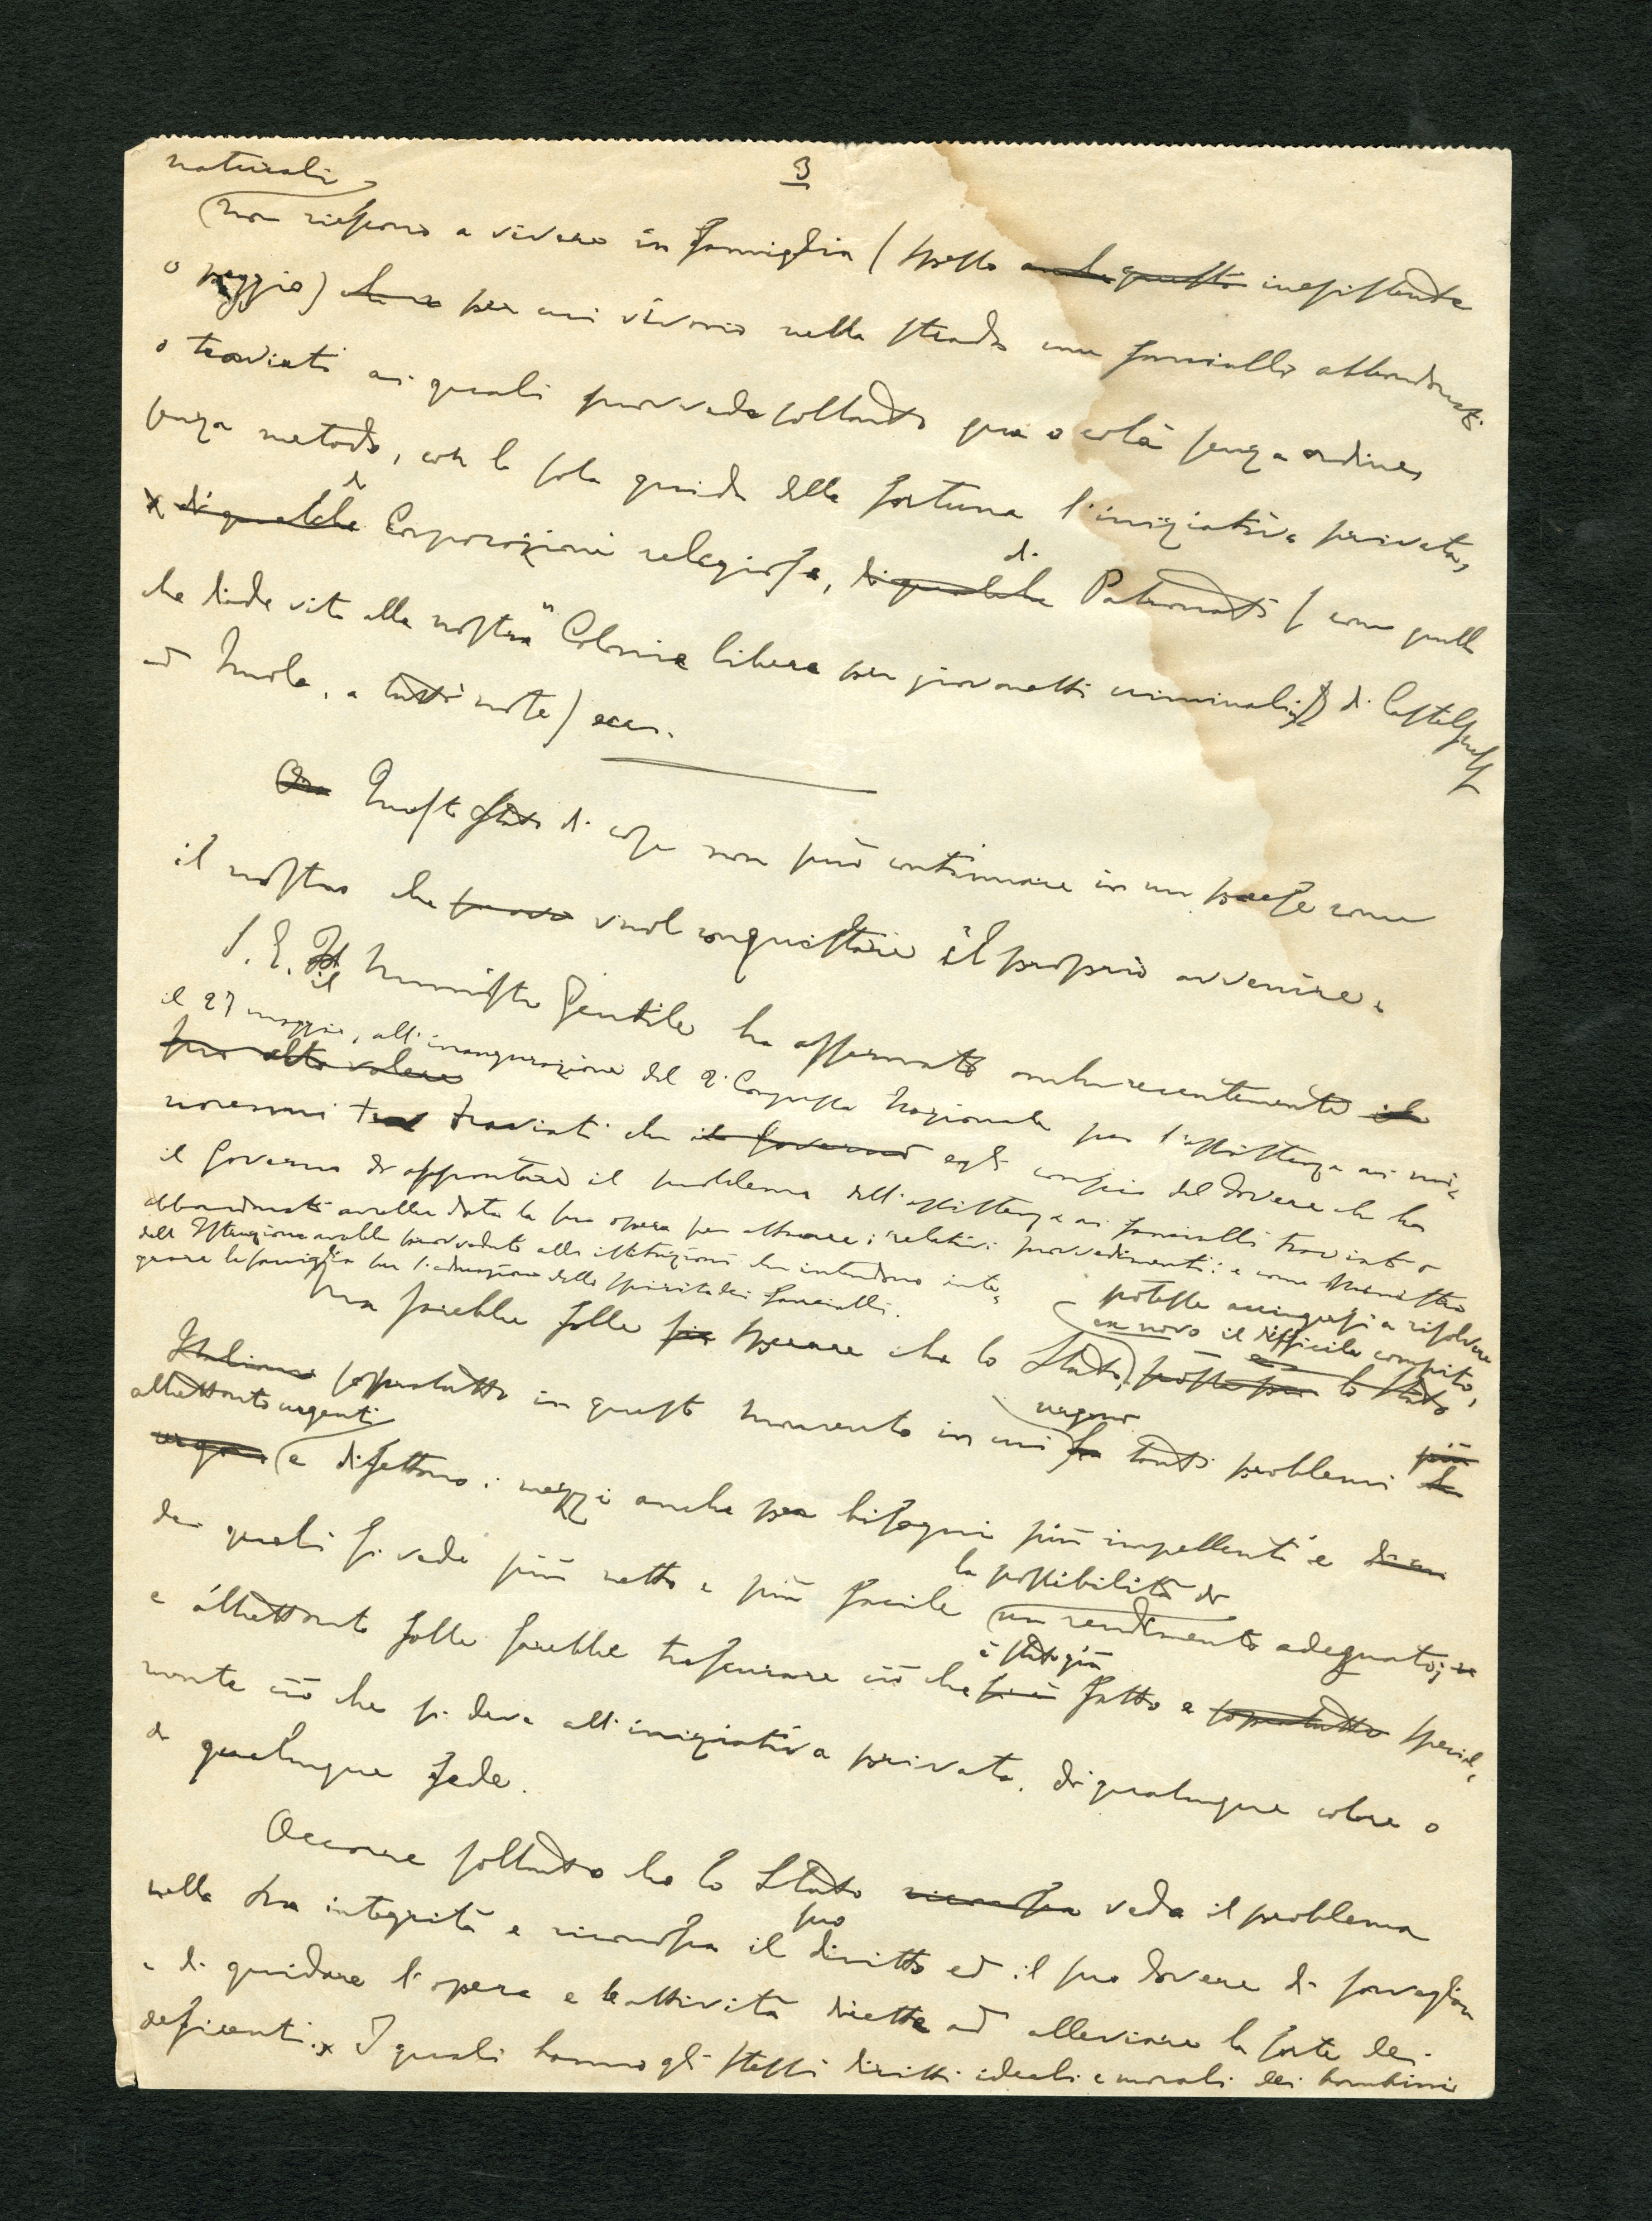 3
naturali
non riescono a vivere in famiglia (spesso anche questa inesistente
o peggio) che ne per cui vivono nella strada come fanciulli abbandonati
o traviati ai quali provvede soltanto qua o colà senza ordine,
senza metodo, con la sola guida della fortuna l'iniziativa privata,
x di qualche di Corporazioni religiose, di qualche di Patronati (come quello
che diede vita alla nostra "Colonia libera per giovanetti criminali" di Castelguelfo
ad Imola, a tutti nota) ecc.
Ora Questo stato di cose non può continuare in un paese come
il nostro che prova vuol conquistare il proprio avvenire.
S. E. il Ministro Gentile ha affermato anche recentemente il
suo alto volere
il 27 maggio, all'inaugurazione del 2° Congresso Nazionale per l'assistenza ai mi-
norenni trav traviati che il Governo egli conscio del dovere che ha
il Governo di affrontare il problema dell'assistenza ai fanciulli traviati o
abbandonati avrebbe data la sua opera per attuare i relativi provvedimenti: e come Ministro
dell'Istruzione avrebbe provveduto alle istituzioni che intendono inte-
grare la famiglia per l'educazione dello spirito dei fanciulli.
Ma sarebbe folle sperare che lo Stato, lo Stato
potesse accingersi a risolvere
ex novo il difficile compito,
Italiano sopratutto in questo momento in cui ha urgono tanti problemi più
altrettanto urgenti
urgenti e difettano i mezzi anche per bisogni più impellenti e
dei quali si vede più netto e più facile la possibilità di un rendimento adeguato;
e altrettanto folle sarebbe trascurare ciò che si è è stato già fatto e sopratutto special-
mente ciò che si deve all'iniziativa privata, di qualunque colore o
di qualunque fede.
Occorre soltanto che lo Stato riconosca veda il problema
nella sua integrità e riconosca il suo diritto ed il suo dovere di sorvegliare
e di guidare l'opera e le attività dirette ad alleviare la sorte dei
deficienti. x I quali hanno gli stessi diritti ideali e morali dei bambini